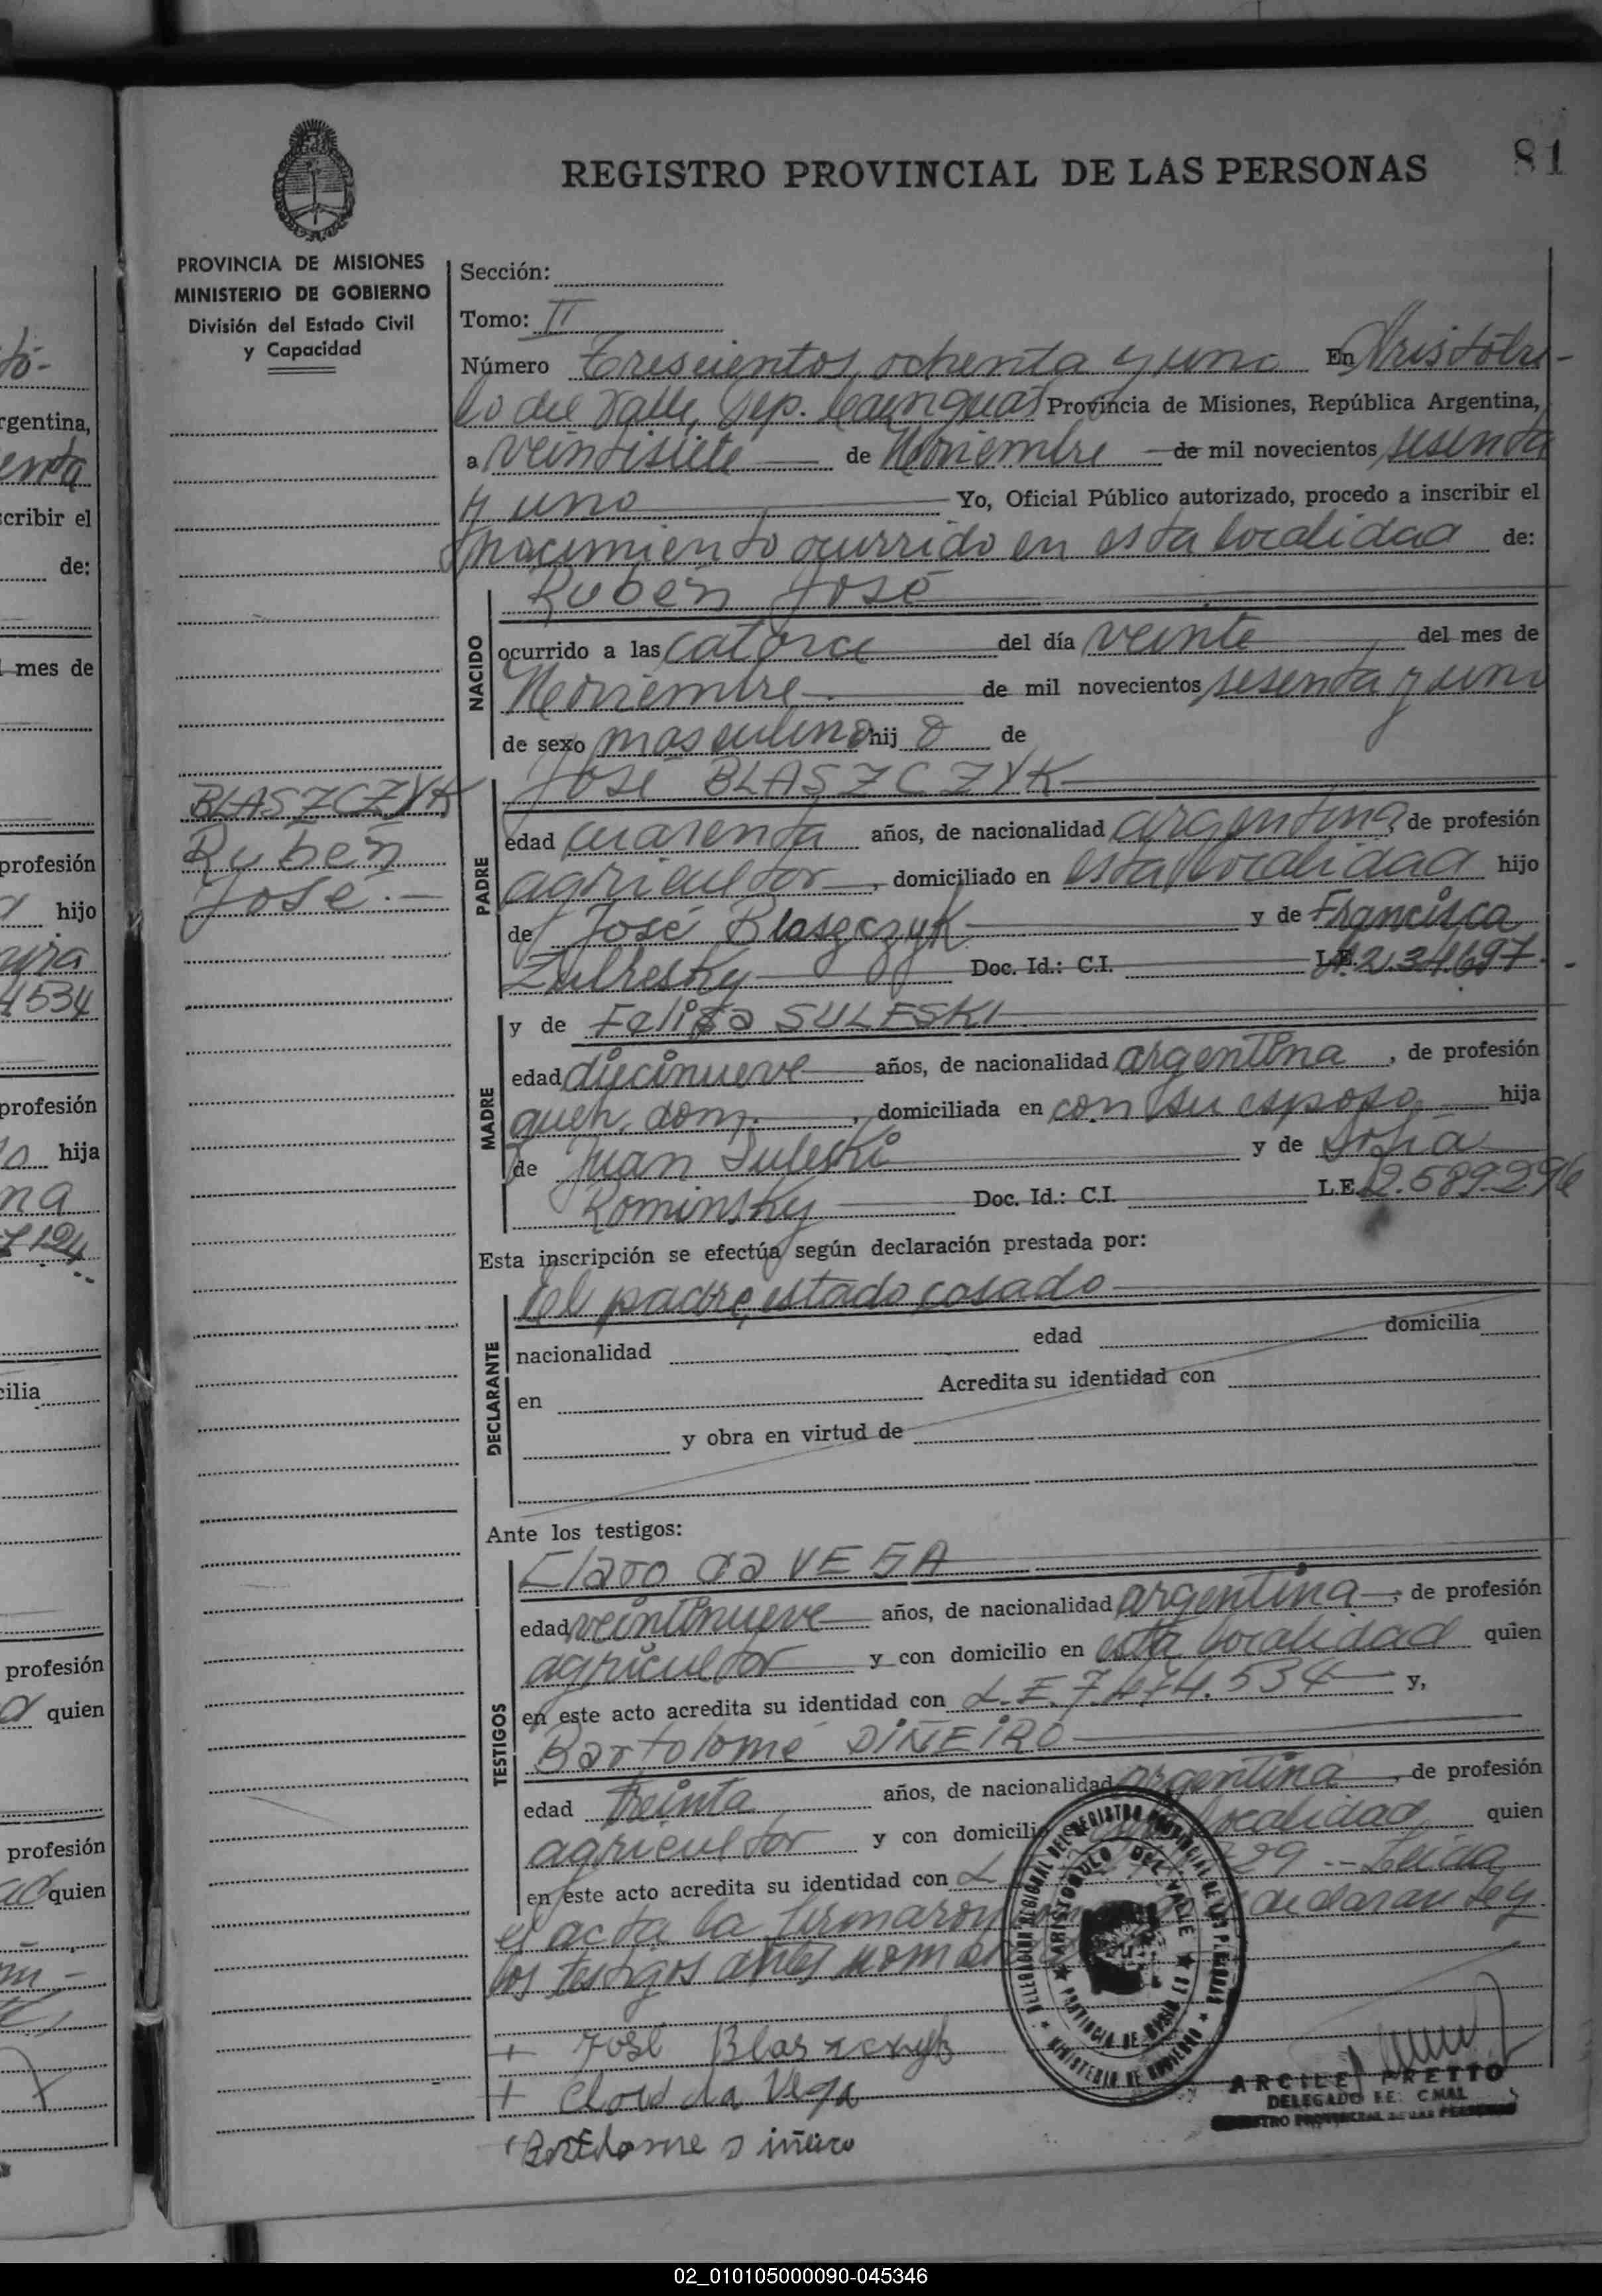 tó-
rgentina,
enta
cribir el
de:
mes de
profesión
hijo
4534
profesión
hija
na
7124
cilia
profesión
quien
profesión
quien
81
REGISTRO PROVINCIAL DE LAS PERSONAS
PROVINCIA DE MISIONES
MINISTERIO DE GOBIERNO
División del Estado Civil
y Capacidad
BLASZCZYK
Rubén
José.-
Sección:
Tomo: II
Número Trescientos, ochenta y uno En Aristóbu-
lo del Valle, Dep. Cainguás Provincia de Misiones, República Argentina,
a veintisiete de Noviembre de mil novecientos sesenta
y uno Yo, Oficial Público autorizado, procedo a inscribir el
nacimiento ocurrido en esta localidad de:
NACIDO
Rubén José
ocurrido a las catorce del día veinte del mes de
Noviembre de mil novecientos sesenta y uno
de sexo masculino hij o de
PADRE
José BLASZCZYK
edad cuarenta años, de nacionalidad argentina, de profesión
agricultor, domiciliado en esta localidad hijo
de José Blaszczyk y de Francisca
Zulresky Doc. Id.: C.I. L.E. 234.697.-
MADRE
y de Felisa SULESKI
edad diecinueve años, de nacionalidad argentina, de profesión
queh. dom., domiciliada en con su esposo hija
de Juan Suleski y de Sofia
Kominsky Doc. Id.: C.I. L.E. 2.589.296
Esta inscripción se efectúa según declaración prestada por:
DECLARANTE
el padre, estado casado
nacionalidad edad domicilia
en Acredita su identidad con
y obra en virtud de
Ante los testigos:
TESTIGOS
Claro da VEGA
edad veintinueve años, de nacionalidad argentina, de profesión
agricultor y con domicilio en esta localidad quien
en este acto acredita su identidad con L.E. 7.474.534 y,
Bartolomé DIÑEIRO
edad treinta años, de nacionalidad argentina, de profesión
agricultor y con domicilio localidad quien
en este acto acredita su identidad con L 29 -- Leida
el acta la firmaron declarante y
los testigos antes nom
DELEGACION REGIONAL DEL REGISTRO PROVINCIAL DE LAS PERSONAS
ARISTOBULO DEL VALLE
PROVINCIA DE MISIONES
MINISTERIO DE GOBIERNO
+ José Blaszczyk
+ Claro da Vega
Bartolome Diñeiro
PRETTO
DELEGADO
02_010105000090-045346